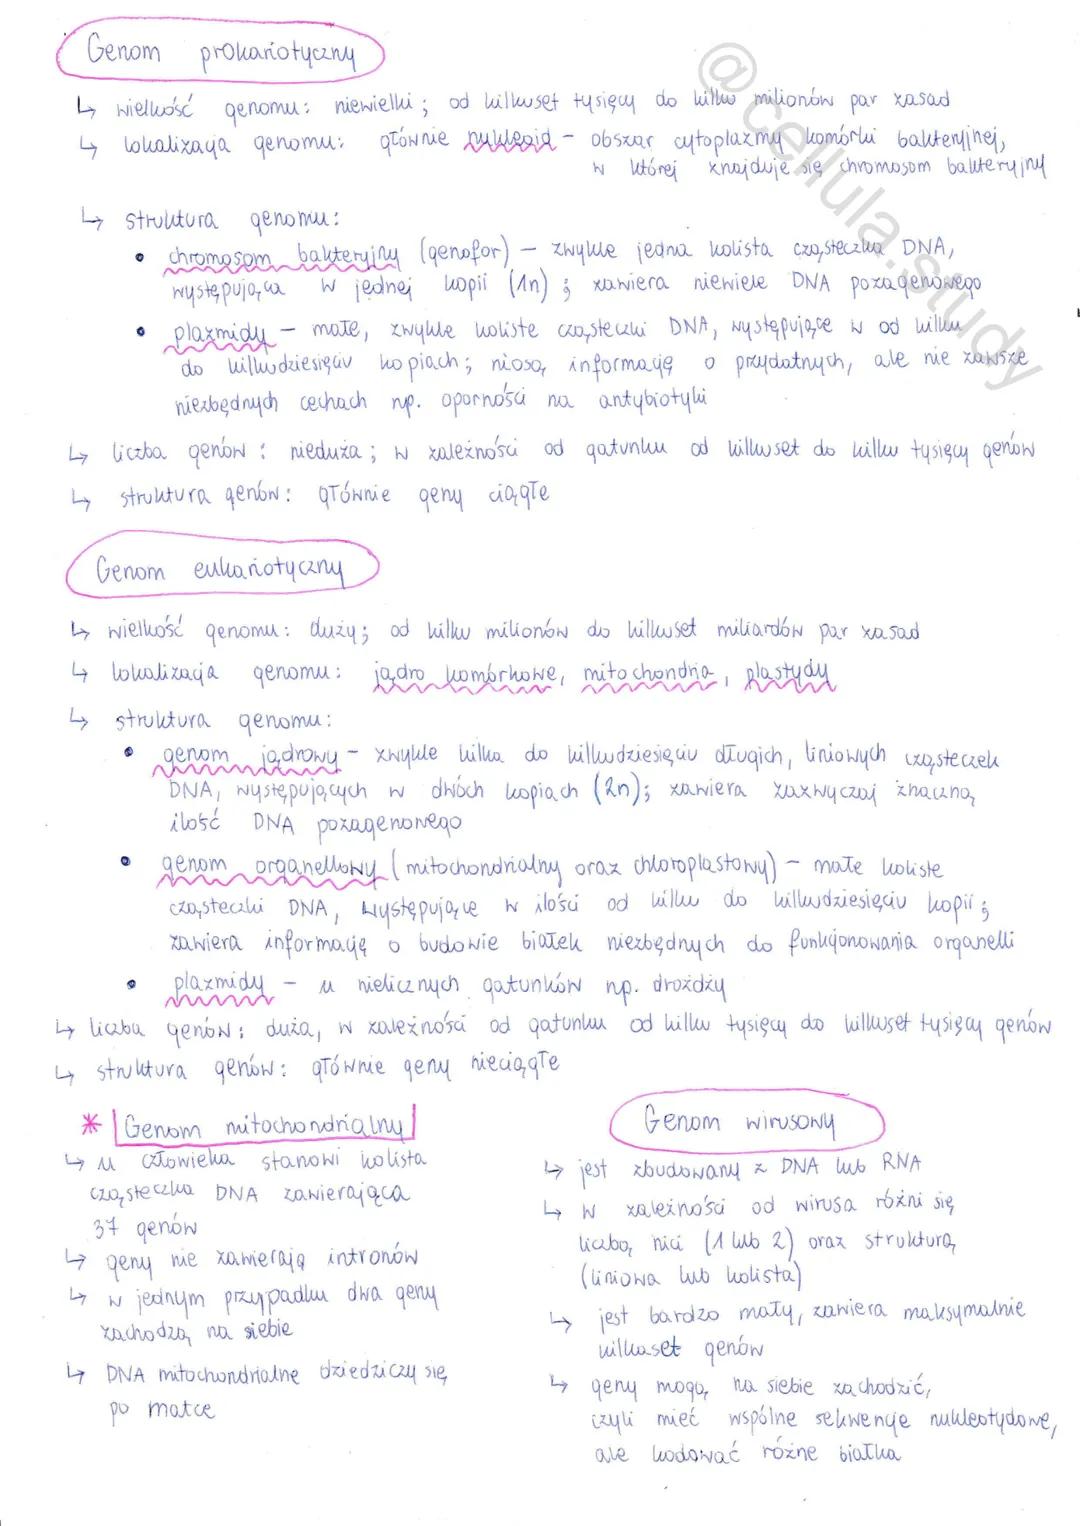 Genom prokariotyczny
↳ wielkość genomu: niewielki; od kilkuset tysięcy do kilku milionów par zasad
↳ lokalizacja genomu: głównie nukleoid - obszar cytoplazmy komórki bakteryjnej,
w której znajduje się chromosom bakteryjny
↳ struktura genomu:
• chromosom bakteryjny (genofor) - zwykle jedna kolista cząsteczka DNA,
występująca w jednej kopii (1n); zawiera niewiele DNA pozagenowego
• plazmidy - małe, zwykle koliste cząsteczki DNA, występujące w od kilku
do kilkudziesięciu kopiach; niosą informację o przydatnych, ale nie zawsze
niezbędnych cechach np. oporności na antybiotyki
↳ liczba genów: nieduża; w zależności od gatunku od kilkuset do kilku tysięcy genów
↳ struktura genów: głównie geny ciągłe
@cellula.study
Genom eukariotyczny
↳ wielkość genomu: duży; od kilku milionów do kilkuset miliardów par zasad
↳ lokalizacja genomu: jądro komórkowe, mitochondria, plastydy
↳ struktura genomu:
• genom jądrowy - zwykle kilka do kilkudziesięciu długich, liniowych cząsteczek
DNA, występujących w dwóch kopiach (2n); zawiera zazwyczaj znaczną
ilość DNA pozagenowego
• genom organellowy (mitochondrialny oraz chloroplastowy) - małe koliste
cząsteczki DNA, występujące w ilości od kilku do kilkudziesięciu kopii;
zawiera informację o budowie białek niezbędnych do funkcjonowania organelli
• plazmidy - u nielicznych gatunków np. drożdży
↳ liczba genów: duża, w zależności od gatunku od kilku tysięcy do kilkuset tysięcy genów
↳ struktura genów: głównie geny nieciągłe
* Genom mitochondrialny
↳ u człowieka stanowi kolista
cząsteczka DNA zawierająca
37 genów
↳ geny nie zawierają intronów
↳ w jednym przypadku dwa geny
zachodzą na siebie
↳ DNA mitochondrialne dziedziczy się
po matce
Genom wirusowy
↳ jest zbudowany z DNA lub RNA
↳ w zależności od wirusa różni się
liczbą nici (1 lub 2) oraz strukturą
(liniowa lub kolista)
↳ jest bardzo mały, zawiera maksymalnie
kilkaset genów
↳ geny mogą na siebie zachodzić,
czyli mieć wspólne sekwencje nukleotydowe,
ale kodować różne białka